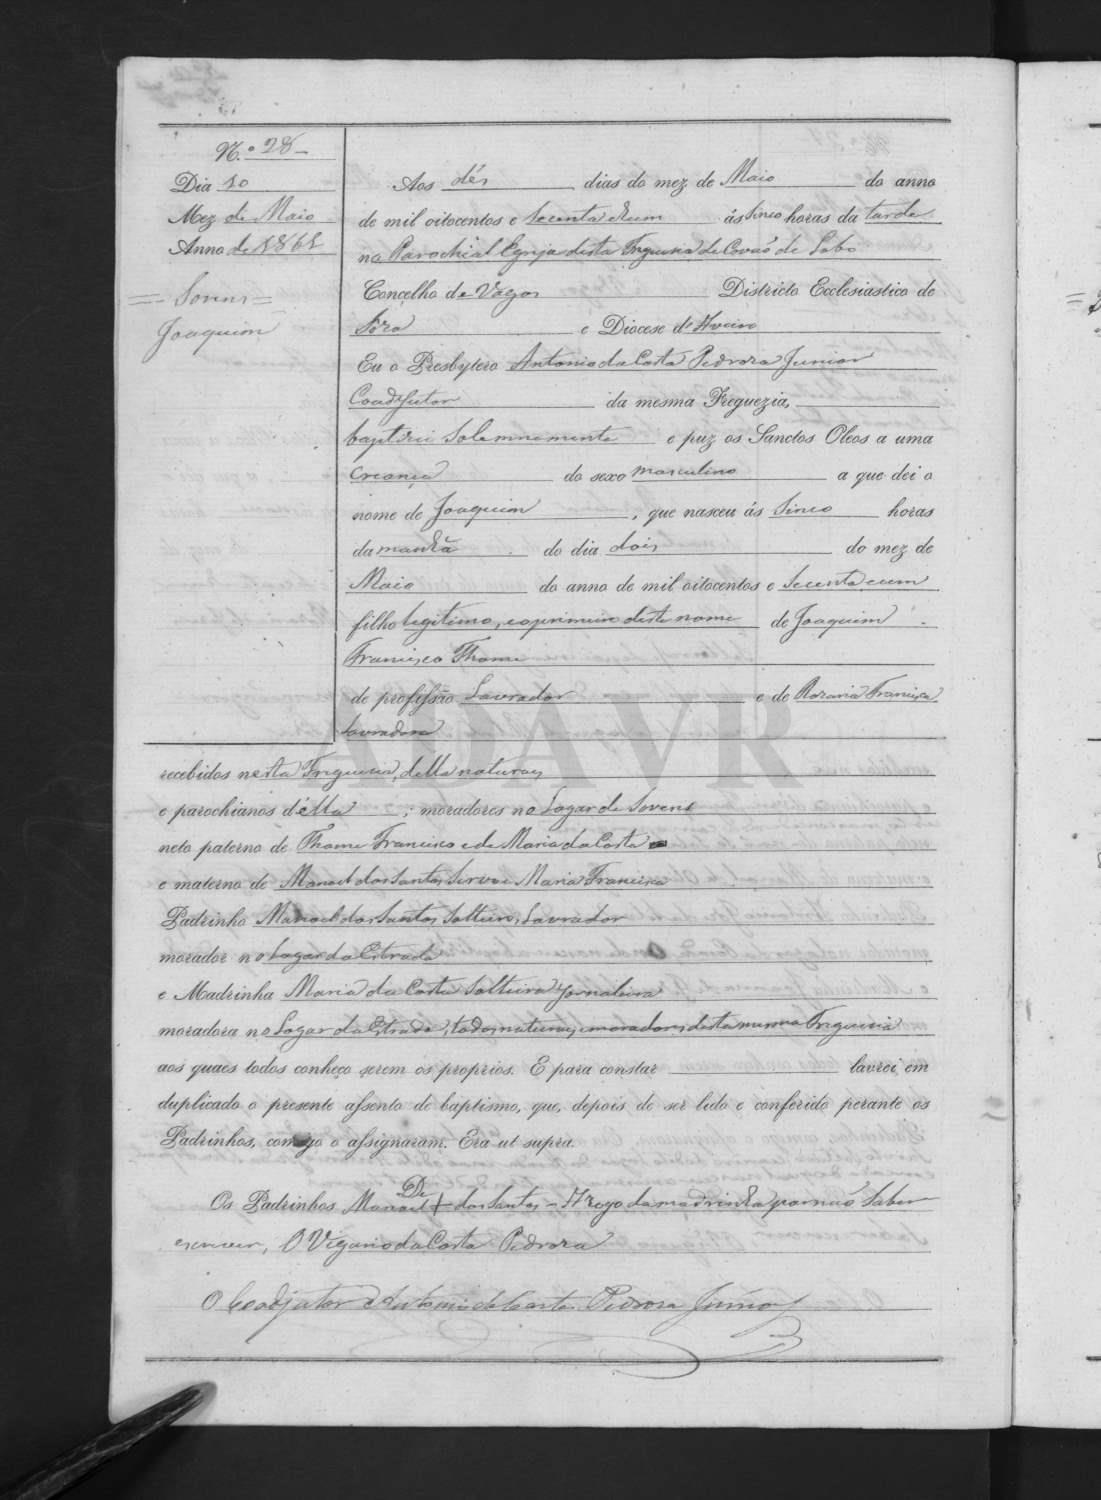 N.º 28
Dia 10
Mez de Maio
Anno de 1861
= Soveni =
Joaquim
Aos dés dias do mez de Maio do anno
de mil oitocentos e Secenta e um ás Sinco horas da tarde
na Parochial Egreja desta Freguesia de Covaõ de Lobo
Concelho de Vagos Districto Ecclesiastico de
e Diocese d'Aveiro
Eu o Presbytero Antonio da Costa Pedroza Junior
Coadjutor da mesma Freguezia,
baptizei Solemnemente e puz os Sanctos Oleos a uma
Creança do sexo masculino a que dei o
nome de Joaquim, que nasceu ás Sinco horas
da manhã do dia dois do mez de
Maio do anno de mil oitocentos e Secenta e um
filho legitimo, e o primeiro deste nome de Joaquim
Francisco Thome
de profissão Lavrador e de Rozaria Francisca
Lavradora
recebidos nesta Freguesia, della naturaes
e parochianos d'ella; moradores no Logar de Soveni
neto paterno de Thome Francisco e de Maria da Costa
e materno de Manoel dos Santos e Maria Francisca
Padrinho Manoel dos Santos Solteiro, Lavrador
morador no Logar da Estrada
e Madrinha Maria da Costa Solteira Jornaleira
moradora no Logar da Estrada, todos naturaes e moradores desta mesma Freguesia
aos quaes todos conheço serem os proprios. E para constar lavrei em
duplicado o presente assento de baptismo, que, depois de ser lido e conferido perante os
Padrinhos, comigo o assignaram. Era ut supra.
Os Padrinhos Manoel + dos Santos - A rogo da madrinha por naõ Saber
escrever, O Vigario da Costa Pedroza
O Coadjutor Antonio da Costa Pedroza Junior
ADAVR